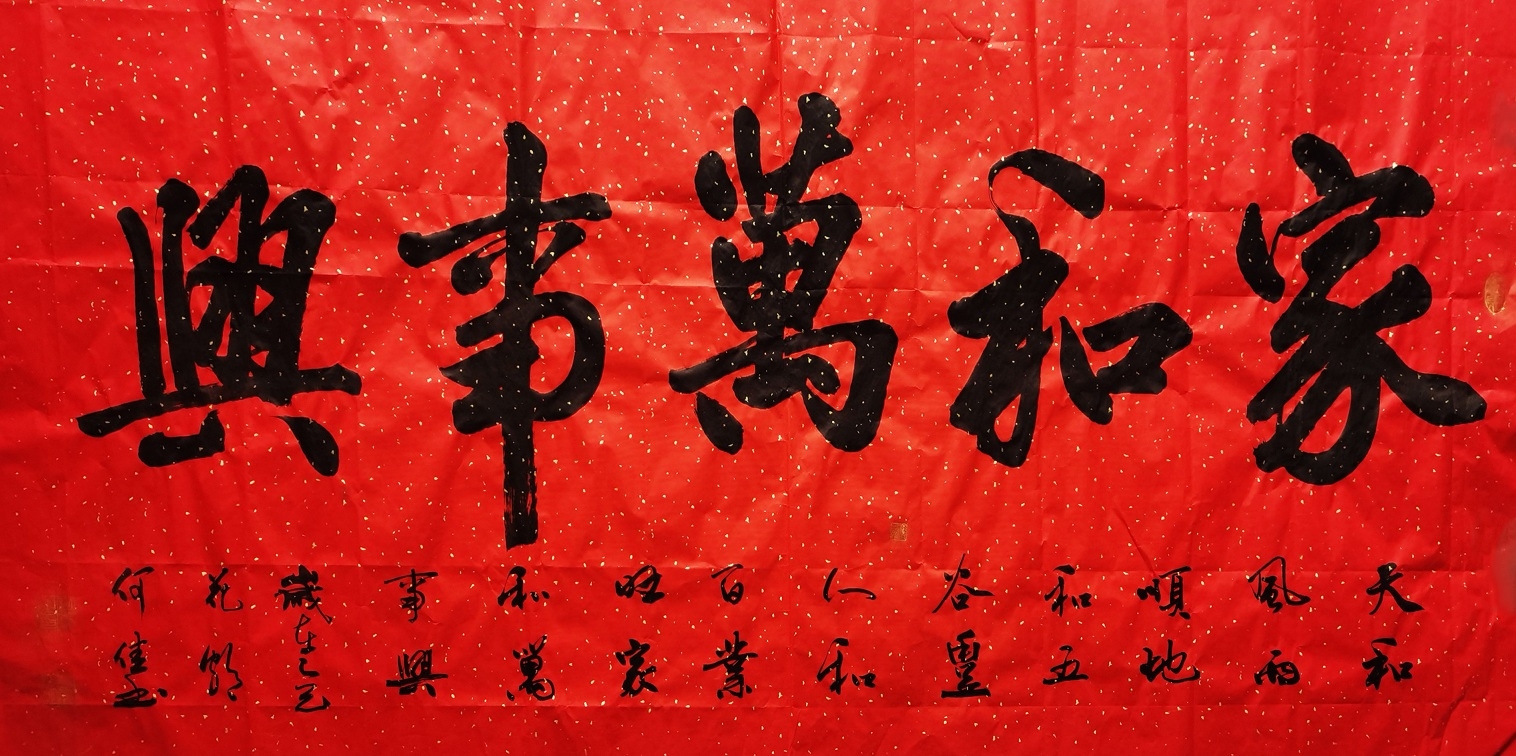 家和萬事興
天和
風雨
順地
和五
谷豐
人和
百業
旺家
和萬
事興
歲在乙巳
花
何佳